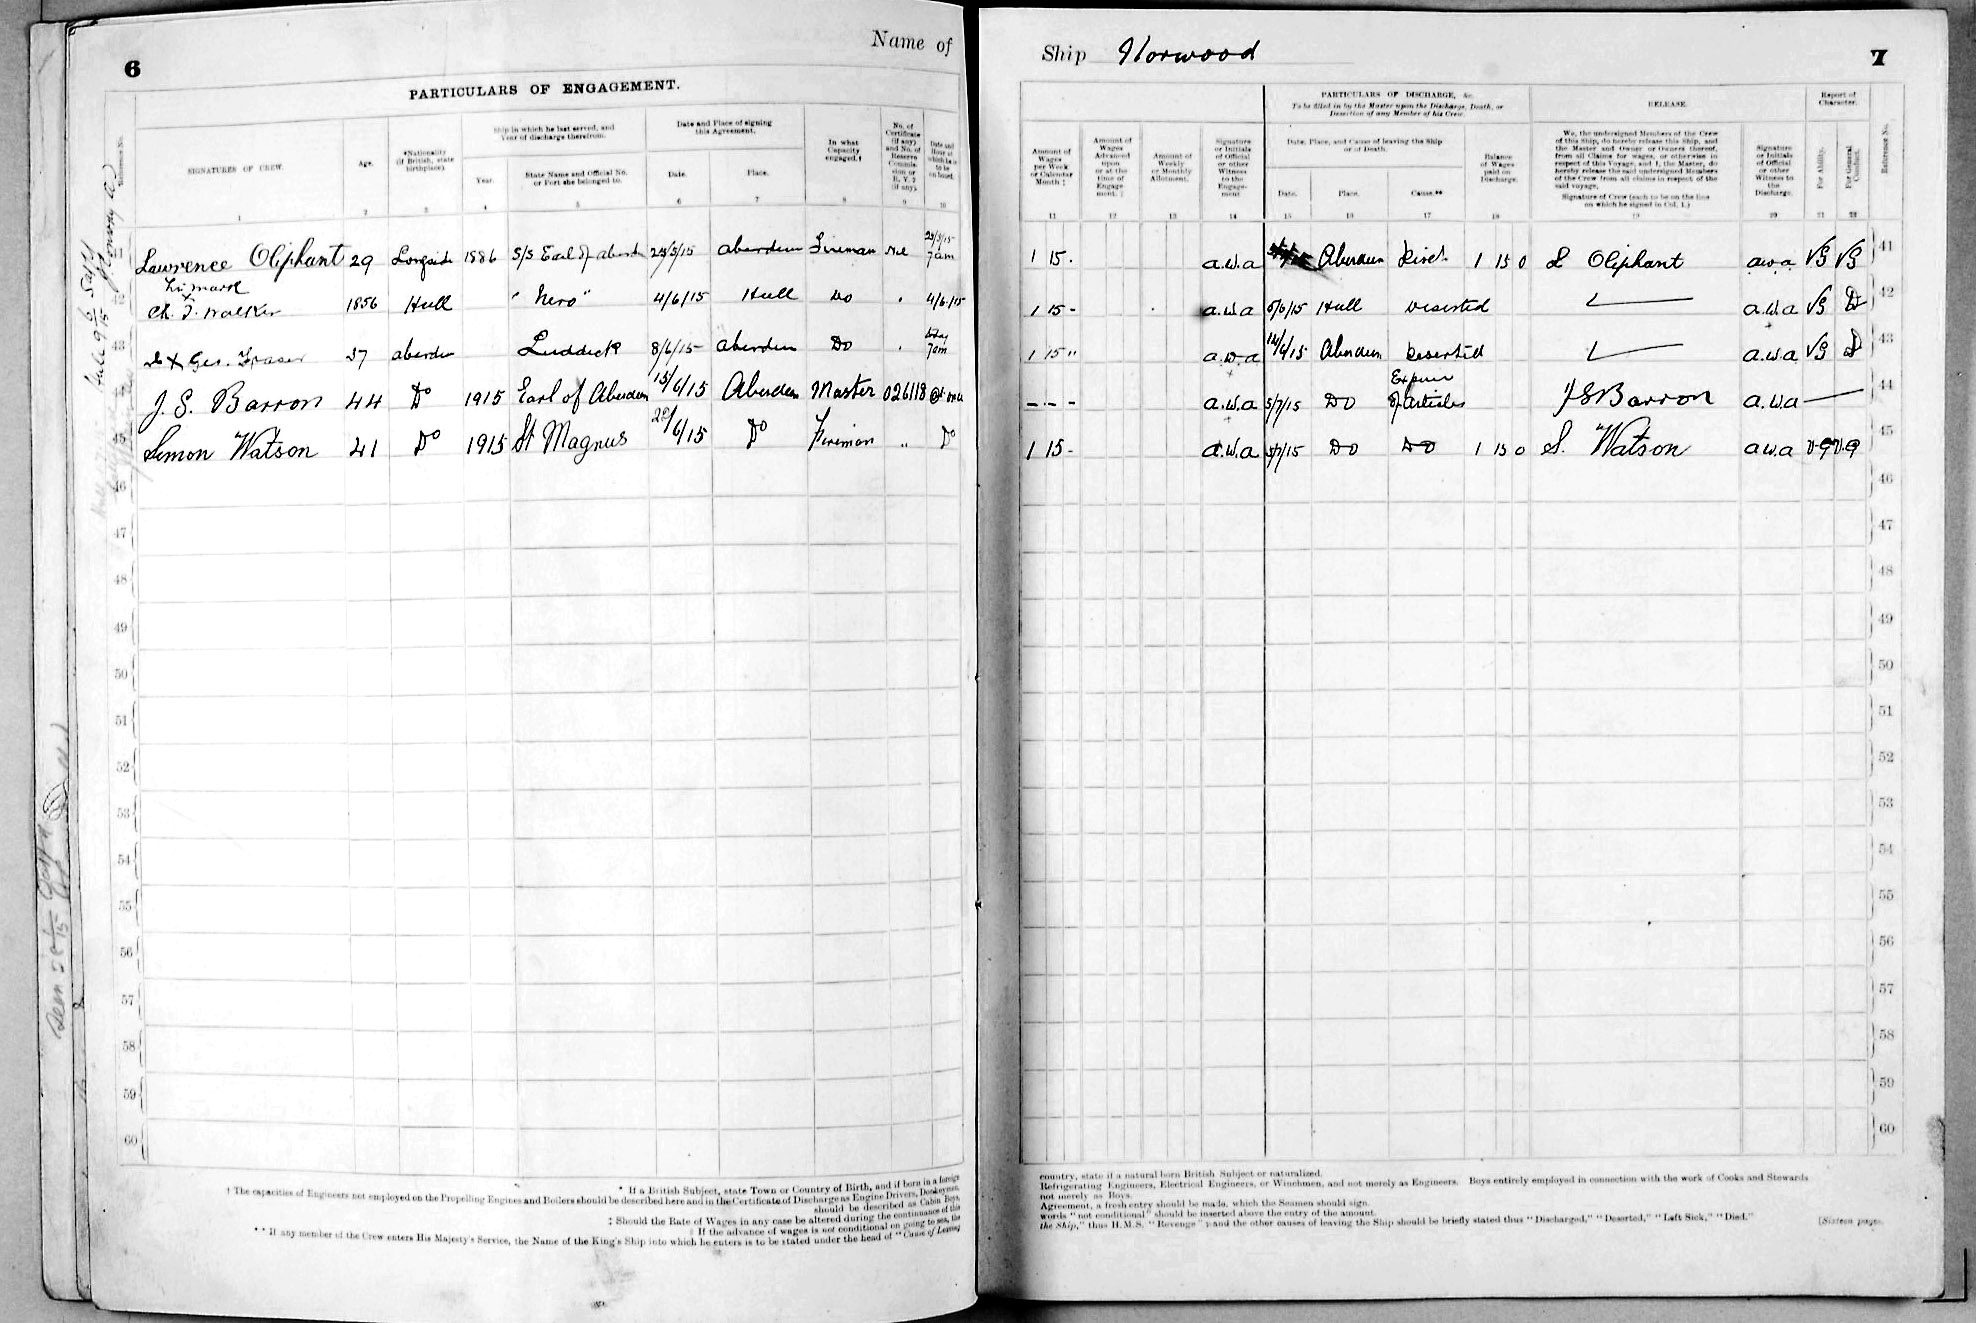 6
Name of
PARTICULARS OF ENGAGEMENT.
SIGNATURES OF CREW.
Age.
*Nationality (if British, state birthplace).
Ship in which he last served, and Year of discharge therefrom.
Year.
State Name and Official No. or Port she belonged to.
Date and Place of signing this Agreement.
Date.
Place.
In what Capacity engaged.†
No. of Certificate (if any) and No. of Reserve Commission or R.V.2 (if any).
Date and Hour at which he is to be on board.
1 2 3 4 5 6 7 8 9 10
Lawrence Oliphant 29 Longside 1886 S/S Earl of Aberd 25/5/15 Aberdeen Fireman Nil 25/5/15 7am
his mark
x
Ch. J. Walker 1856 Hull " Nero" 4/6/15 Hull Do " 4/6/15
x Geo. Fraser 37 Aberdeen Luddick 8/6/15 Aberdeen Do " 7am
J. S. Barron 44 Do 1915 Earl of Aberdeen 15/6/15 Aberdeen Master 026118 @ once
Simon Watson 41 Do 1915 St Magnus 22/6/15 Do Fireman " Do
46
47
48
49
50
51
52
53
54
55
56
57
58
59
60
* If a British Subject, state Town or Country of Birth, and if born in a foreign
† The capacities of Engineers not employed on the Propelling Engines and Boilers should be described here and in the Certificate of Discharge as Engine Drivers, Donkeymen,
should be described as Cabin Boys,
‡ Should the Rate of Wages in any case be altered during the continuance of this
If the advance of wages is not conditional on going to sea, the
** If any member of the Crew enters His Majesty's Service, the Name of the King's Ship into which he enters is to be stated under the head of "Cause of Leaving
Ship Norwood
7
PARTICULARS OF DISCHARGE, &c.
To be filled in by the Master upon the Discharge, Death, or Desertion of any Member of his Crew.
RELEASE.
Report of Character.
Amount of Wages per Week or Calendar Month ‡
Amount of Wages Advanced upon or at the time of Engagement.
Amount of Weekly or Monthly Allotment.
Signature or Initials of Official or other Witness to the Engagement
Date, Place, and Cause of leaving the Ship or of Death.
Date.
Place.
Cause.**
Balance of Wages paid on Discharge.
We, the undersigned Members of the Crew of this Ship, do hereby release this Ship, and the Master and Owner or Owners thereof, from all Claims for wages, or otherwise in respect of this Voyage, and I, the Master, do hereby release the said undersigned Members of the Crew from all claims in respect of the said voyage.
Signature of Crew (each to be on the line on which he signed in Col. 1.)
Signature or Initials of Official or other Witness to the Discharge.
For Ability.
For General Conduct.
Reference No.
11 12 13 14 15 16 17 18 19 20 21 22
1 15 . a.w.a Aberdeen Disch. 1 15 0 L Oliphant a.w.a VG VG 41
1 15 - a.w.a 5/6/15 Hull Deserted a.w.a VG D 42
1 15 " a.w.a 14/6/15 Aberdeen Deserted a.w.a VG D 43
- - - a.w.a 5/7/15 Do Expire of Articles J S Barron a.w.a 44
1 15 - a.w.a 5/7/15 Do Do 1 15 0 S. Watson a.w.a V.G V.G 45
46
47
48
49
50
51
52
53
54
55
56
57
58
59
60
country, state if a natural born British Subject or naturalized.
Refrigerating Engineers, Electrical Engineers, or Winchmen, and not merely as Engineers. Boys entirely employed in connection with the work of Cooks and Stewards
not merely as Boys.
Agreement, a fresh entry should be made, which the Seamen should sign.
words "not conditional" should be inserted above the entry of the amount.
the Ship," thus H.M.S. "Revenge"; and the other causes of leaving the Ship should be briefly stated thus "Discharged," "Deserted," "Left Sick," "Died."
[Sixteen pages.